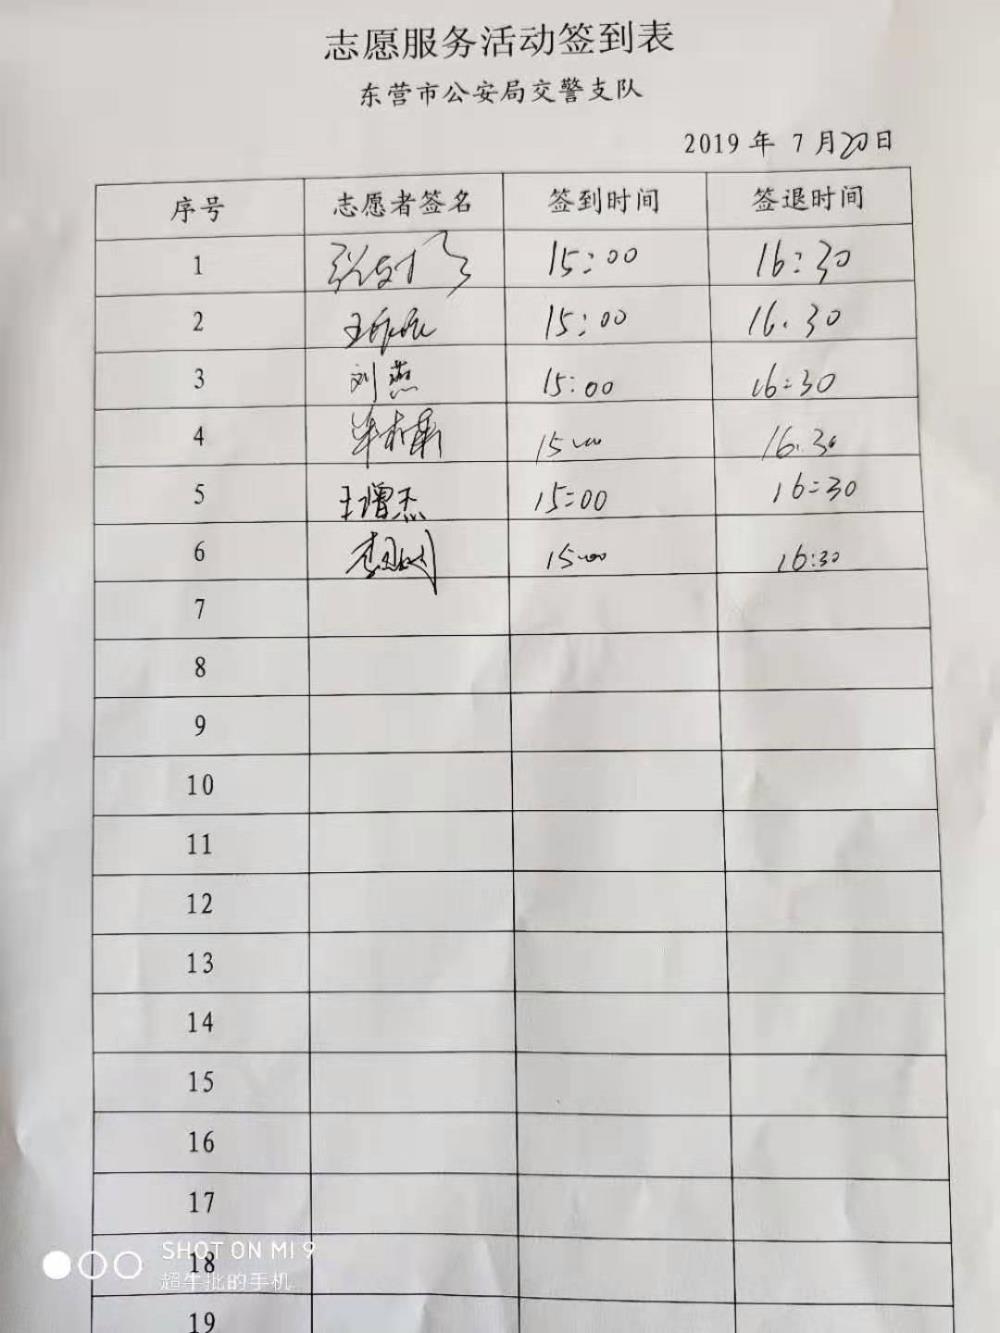 志愿服务活动签到表
东营市公安局交警支队
2019 年 7 月20日
序号 志愿者签名 签到时间 签退时间
1 15:00 16:30
2 15:00 16.30
3 刘燕 15:00 16:30
4 15:00 16.30
5 王增杰 15:00 16:30
6 15:00 16:30
7
8
9
10
11
12
13
14
15
16
17
18
19
SHOT ON MI 9
超牛批的手机